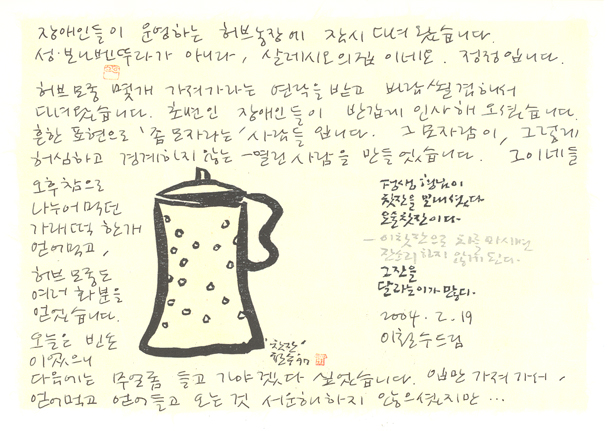 장애인들이 운영하는 허브농장에 잠시 다녀 왔습니다.
성·보나벤뚜라가 아니라, 살레시오의집 이네요. 정정입니다.
허브 모종 몇개 가져가라는 연락을 받고 바람쐴 겸해서
다녀왔습니다. 초면인 장애인들이 반갑게 인사해 오셨습니다.
흔한 표현으로 '좀 모자라는' 사람들 입니다. 그 모자람이, 그렇게
허심하고 경계하지않는 - 열린 사람을 만들었습니다. 그이네들
오후참으로
나누어 먹던
가래떡 한개
얻어먹고,
허브 모종도
여러 화분을
얻었습니다.
오늘은 빈손
이었으니
다음에는 뭐 좀 들고 가야겠다 싶었습니다. 입만 가져가서,
얻어먹고 얻어들고 오는 것 서운해 하지 않으셨지만 …
판생 형님이
찻잔을 보내셨다
오죽 찻잔이다-
- 이찻잔으로 차를 마시면
잔소리하지 않게된다-
그잔을
달라는이가 많다.
2004. 2. 19
이철수드림
'찻잔'
철수